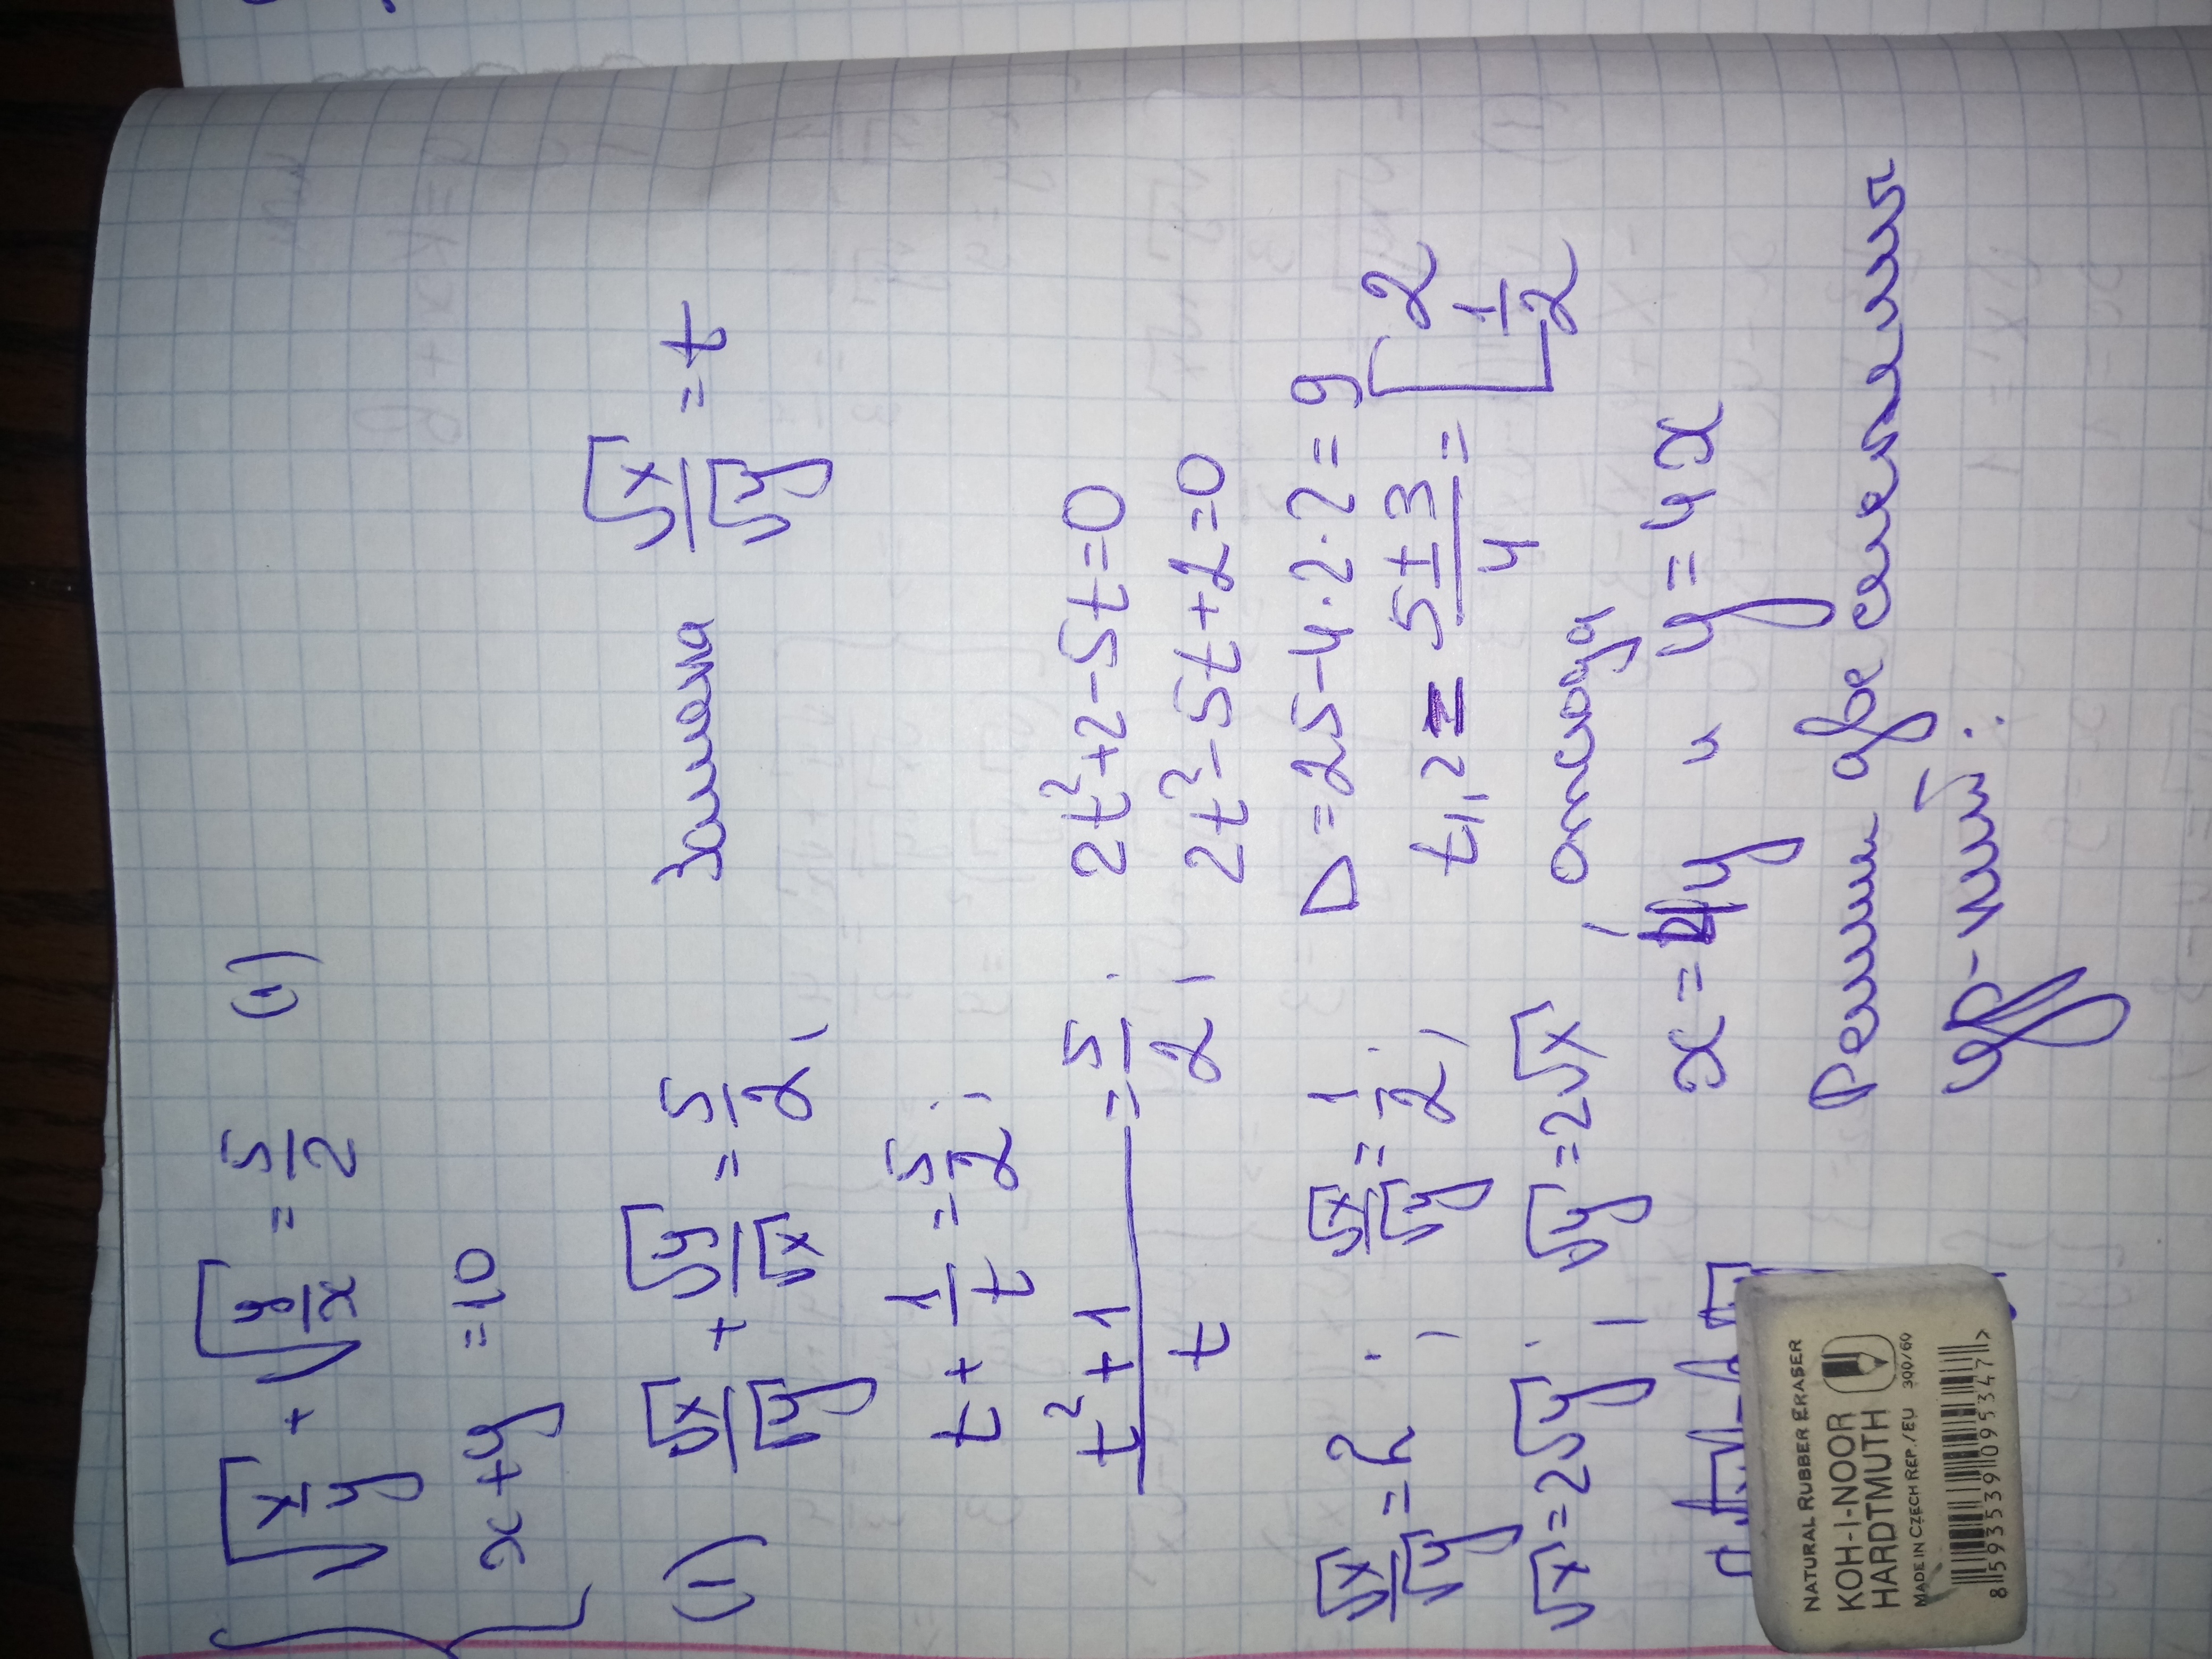 √(x/y) + √(y/x) = 5/2 (1)
x + y = 10
(1) √x/√y + √y/√x = 5/2, замена √x/√y = t
t + 1/t = 5/2;
(t² + 1)/t = 5/2; 2t² + 2 - 5t = 0
2t² - 5t + 2 = 0
D = 25 - 4·2·2 = 9
√x/√y = 2; √x/√y = 1/2; t₁,₂ = (5 ± 3)/4 = [2 1/2
√x = 2√y; √y = 2√x, отсюда
x = 4y и y = 4x
Решим две системы
ур-ний:
NATURAL RUBBER ERASER
KOH-I-NOOR
HARDTMUTH
MADE IN CZECH REP./EU 300/60
8 593539 095347 >